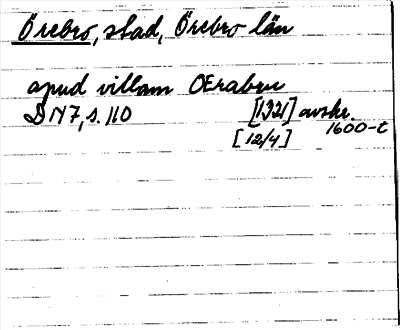 Örebro, stad, Örebro län
apud villam OErabru
DN7, s. 110 [1321] avskr.
[12/4] 1600-t